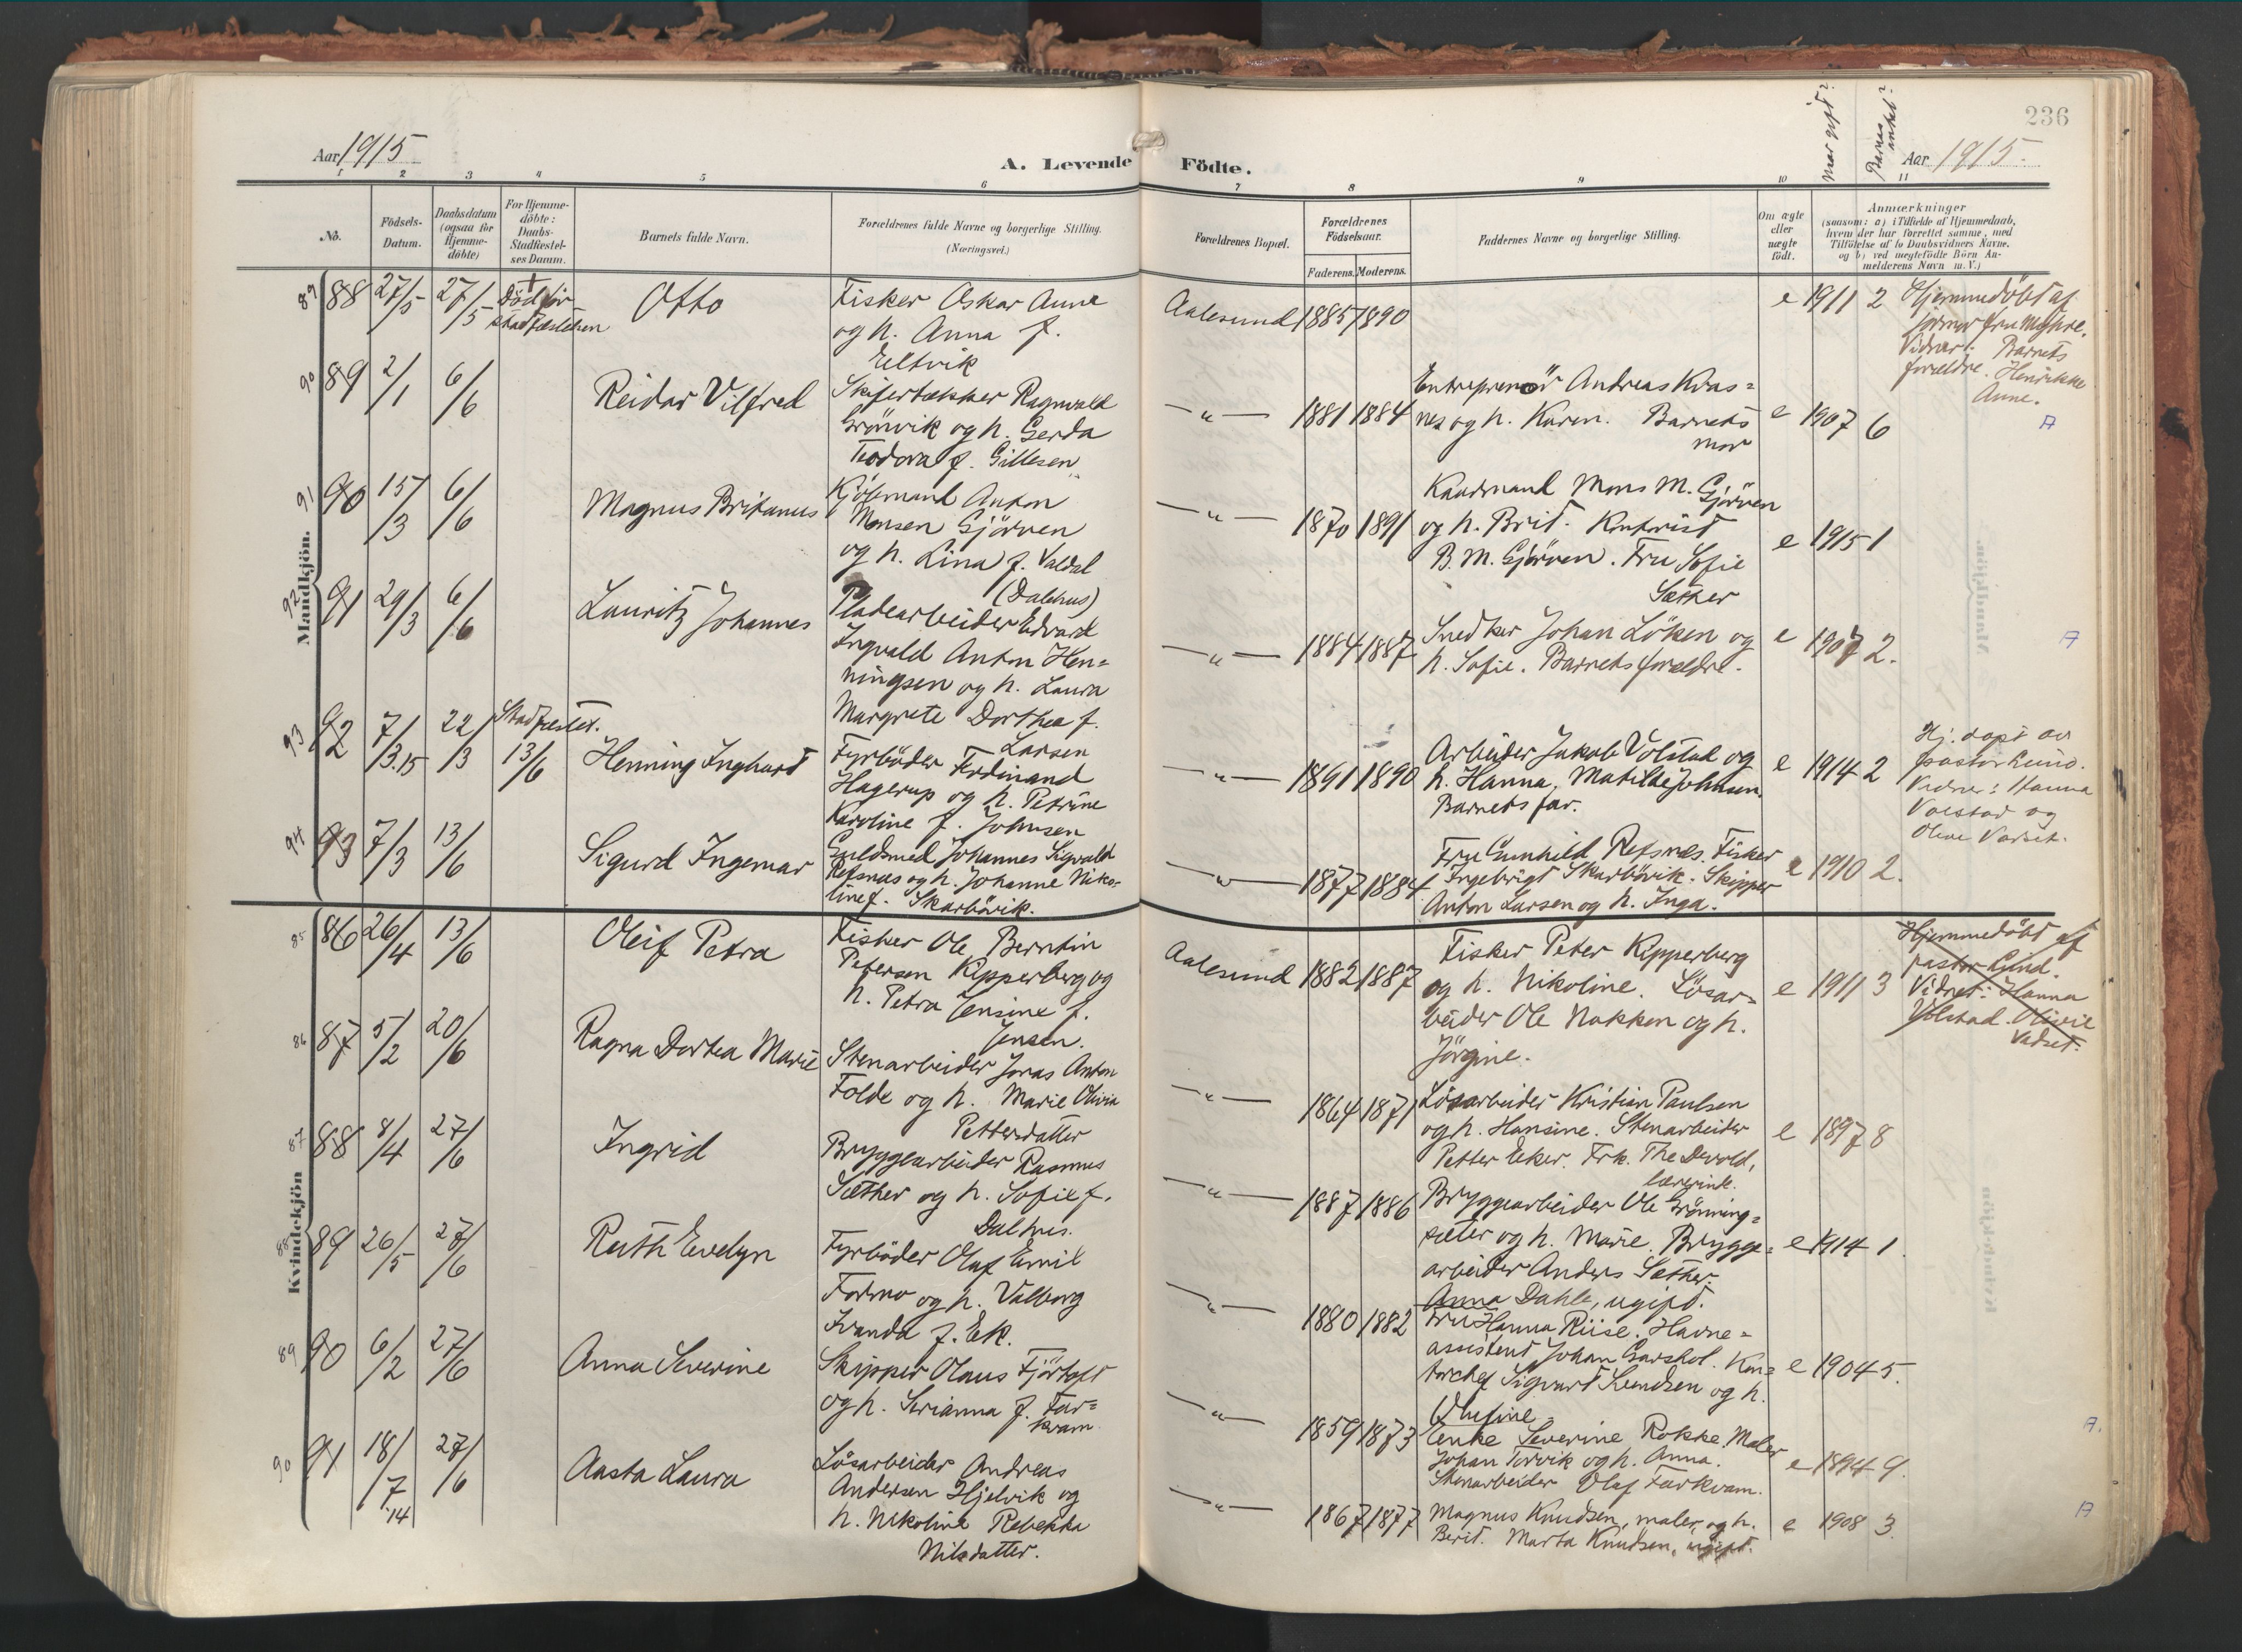 236
Aar 1915
A. Levende Födte.
Naar gift?
Barnes antal?
Aar 1915.
1 2 3 4 5 6 7 8 9 10 11
No.
Födsels-
Datum.
Daabsdatum
(ogsaa for
Hjemme-
döbte)
For Hjemme-
döbte:
Daabs-
Stadfæstel-
ses Datum.
Barnets fulde Navn.
Forældrenes fulde Navne og borgerlige Stilling.
(Næringsvei.)
Forældrenes Bopæl.
Forældrenes
Födselsaar.
Faderens. Moderens.
Faddernes Navne og borgerlige Stilling.
Om ægte
eller
uægte
födt.
Anmærkninger
(saasom: a) i Tilfælde af Hjemmedaab,
hvem der har forrettet samme, med
Tilföielse af to Daabsvidners Navne.
og b) ved uægtefödte Börn An-
melderens Navn m. V.)
Mandkjön.
89 88 27/5 27/5 † Död för
stadfæstelsen
Otto
Fisker Oskar Anne
og h. Anna f.
Eltvik
Aalesund 1885 1890
e 1911 2
Hjemmedöbt af
farmor fru Myhre.
Vidner: Barnets
forældre. Henrikke
Anne.
90 89 2/1 6/6
Reidar Vilfred
Skifertækker Ragnvald
Grönvik og h. Gerda
Teodora f. Gillesen
— " — 1881 1884
Entreprenör Andreas Kvas=
nes og h. Karen. Barnets
mor
e 1907 6
A
91 90 15/3 6/6
Magnus Britanus
Kjöbmand Anton
Monsen Gjörven
og h. Lina f. Valdal
(Dalhus)
— " — 1870 1891
Kaudmand Mons M. Gjörven
og h. Brit. Kontorist
B. M. Gjörven. Fru Sofie
Sæther
e 1915 1
92 91 29/3 6/6
Lauritz Johannes
Pladearbeider Edvard
Ingvald Anton Hen=
ningsen og h. Laura
Margrete Dorthea f.
Larsen
— " — 1884 1887
Snedker Johan Löken og
h. Sofie. Barnets forældre.
e 1907 2.
A
93 92 7/3.15 22/3 Stadfæstet.
13/6
Henning Inghart
Fyrböder Ferdinand
Hagerup og h. Petrine
Karoline f. Johnsen
— " — 1891 1890
Arbeider Jakob Volstad og
h. Hanna, Matilde Johnsen.
Barnets far.
e 1914 2
Hj. döpt av
pastor Lund.
Vidner: Hanna
Volstad og
Olive Vadset.
94 93 7/3 13/6
Sigurd Ingemar
Guldsmed Johannes Sigvald
Refsnæs og h. Johanne Niko=
line f. Skarbövik.
— " — 1877 1884
Fru Gunhild Refsnæs. Fisker
Ingebrigt Skarbövik. Skipper
Anton Larsen og h. Inga.
e 1910 2.
Kvindekjön
85 86 26/4 13/6
Oleif Petra
Fisker Ole Berntin
Petersen Kipperberg og
h. Petra Jensine f.
Jensen.
Aalesund 1882 1887
Fisker Peter Kipperberg
og h. Nikoline. Lösar=
beider Ole Nakken og h.
Jörgine.
e 1911 3
Hjemmedöbt af
pastor Lund.
Vidner: Hanna
Volstad. Olivie
Vadset.
86 87 5/2 20/6
Ragna Dortea Marie
Stenarbeider Jonas Anton
Folde og h. Marie Olivia
Pettersdatter
— " — 1864 1871
Lösarbeider Kristian Paulsen
og h. Hansine. Stenarbeider
Petter Eker. Frk. Thea Devold,
lærerinde.
e 1897 8
87 88 8/4 27/6
Ingrid
Bryggearbeider Rasmus
Sæther og h. Sofie f.
Dalhus.
— " — 1887 1886
Bryggearbeider Ole Grönning=
sæter og h. Marie. Brygge=
arbeider Anders Sæther.
Anna Dahle, ugift.
e 1914 1.
88 89 26/5 27/6
Ruth Evelyn
Fyrböder Olaf Emil
Formo og h. Valborg
Ivanda f. Ek.
— " — 1880 1882
Fru Hanna Riise. Havne=
assistent Johan Garshol. Kon=
torchef Sigvart Svendsen og h.
Olufine
e 1904 5.
89 90 6/2 27/6
Anna Severine
Skipper Olaus Fjörtoft
og h. Serianna f. Far=
kvam
— " — 1859 1873
Enke Severine Rokke. Maler
Johan Torvik og h. Anna.
Stenarbeider Olaf Farkvam.
e 1894 9.
A.
90 91 18/7 '14 27/6
Aasta Laura
Lösarbeider Andreas
Andersen Hjelvik og
h. Nikoline Rebekka
Nilsdatter.
— " — 1867 1877
Magnus Knudsen, maler, og h.
Berit. Marta Knudsen, ugift.
e 1908 3.
A